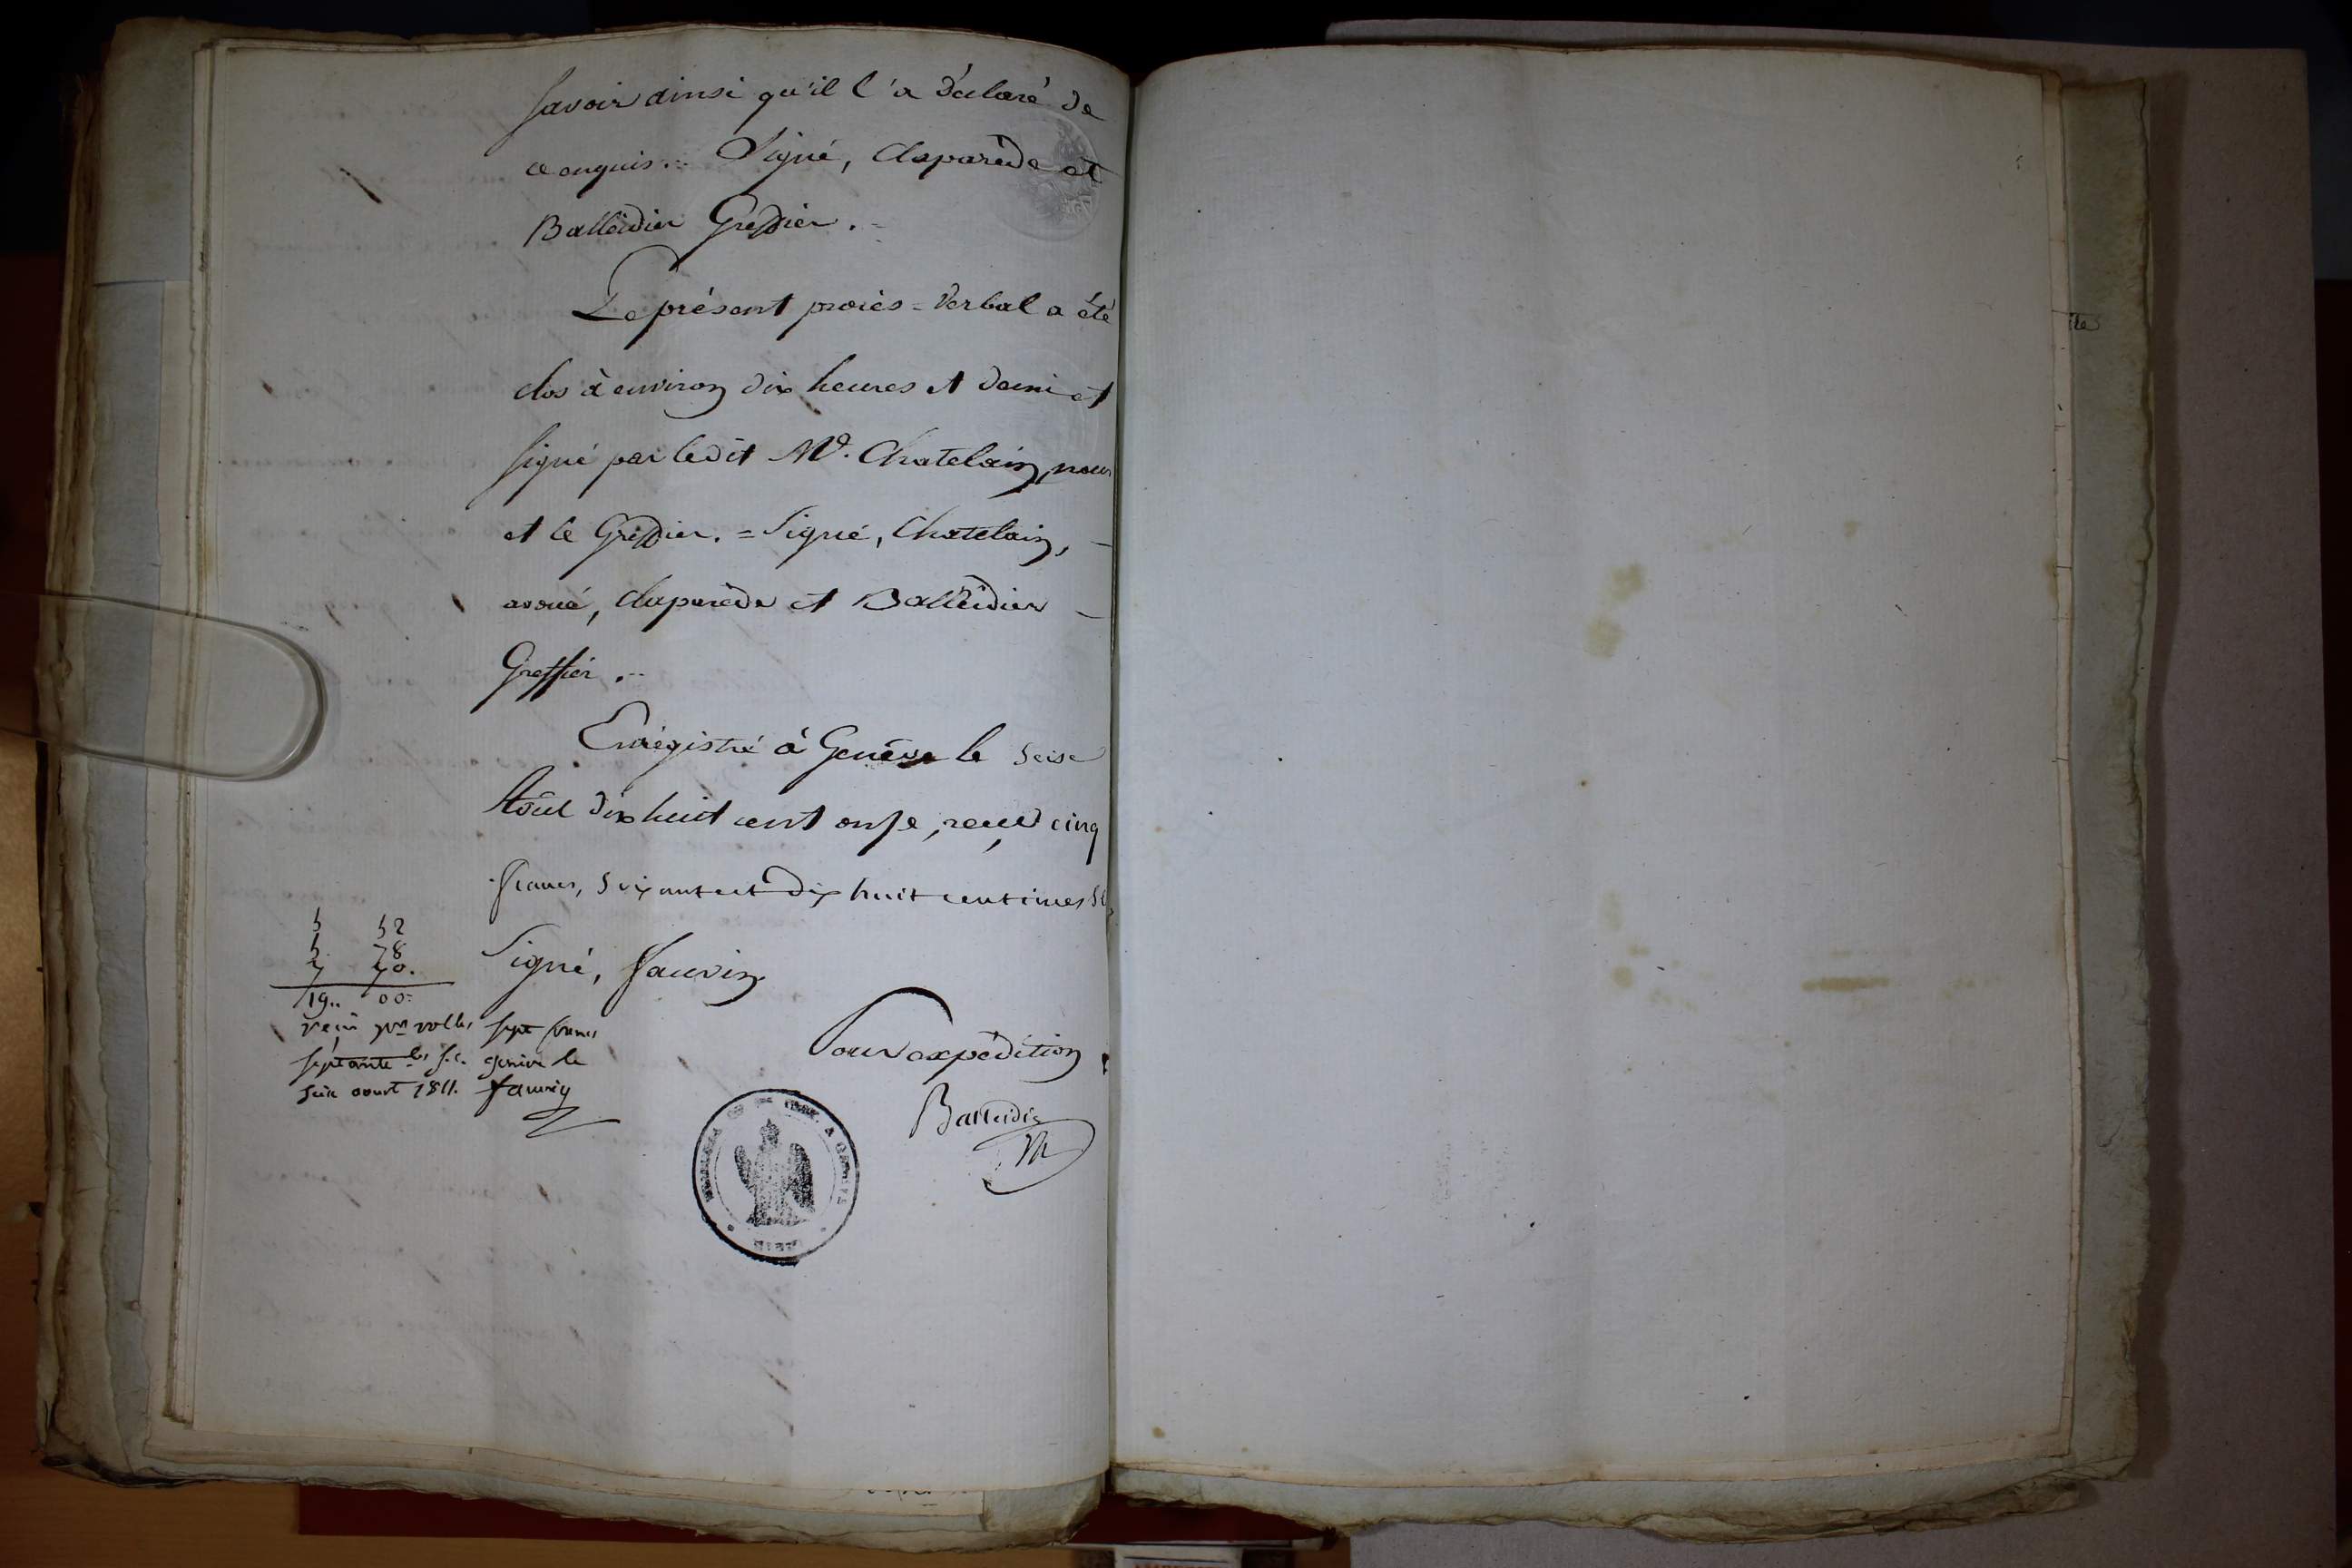 savoir ainsi qu'il l'a déclaré de
ce enquis. Signé, Claparède et
Balleidier Greffier. =
Le présent procès = Verbal a été
clos à environ dix heures et demi et
signé par ledit Me. Chatelain, nous
et le Greffier. = Signé, Chatelain, -
avoué, Claparède et Balleidier -
Greffier. -
Enregistré à Genève le seise
Aoûst dix huit cent onse, reçu cinq
francs, soixante et dix huit centimes
Signé, Sauvin
5 52
5. 78
7 70.
19.. 00
reçu pr rolles sept francs
septante Genève le
seise aoust 1811. Sauvin
Pour expédition
Balleidier